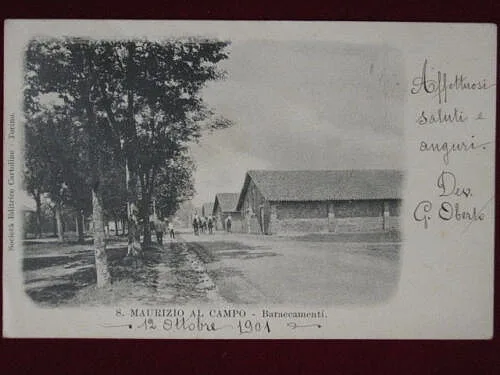 Società Editrice Cartoline - Torino.
Affettuosi
saluti e
anguri.
Dev.
G. Oberto
S. MAURIZIO AL CAMPO - Baraccamenti.
12 Ottobre 1901